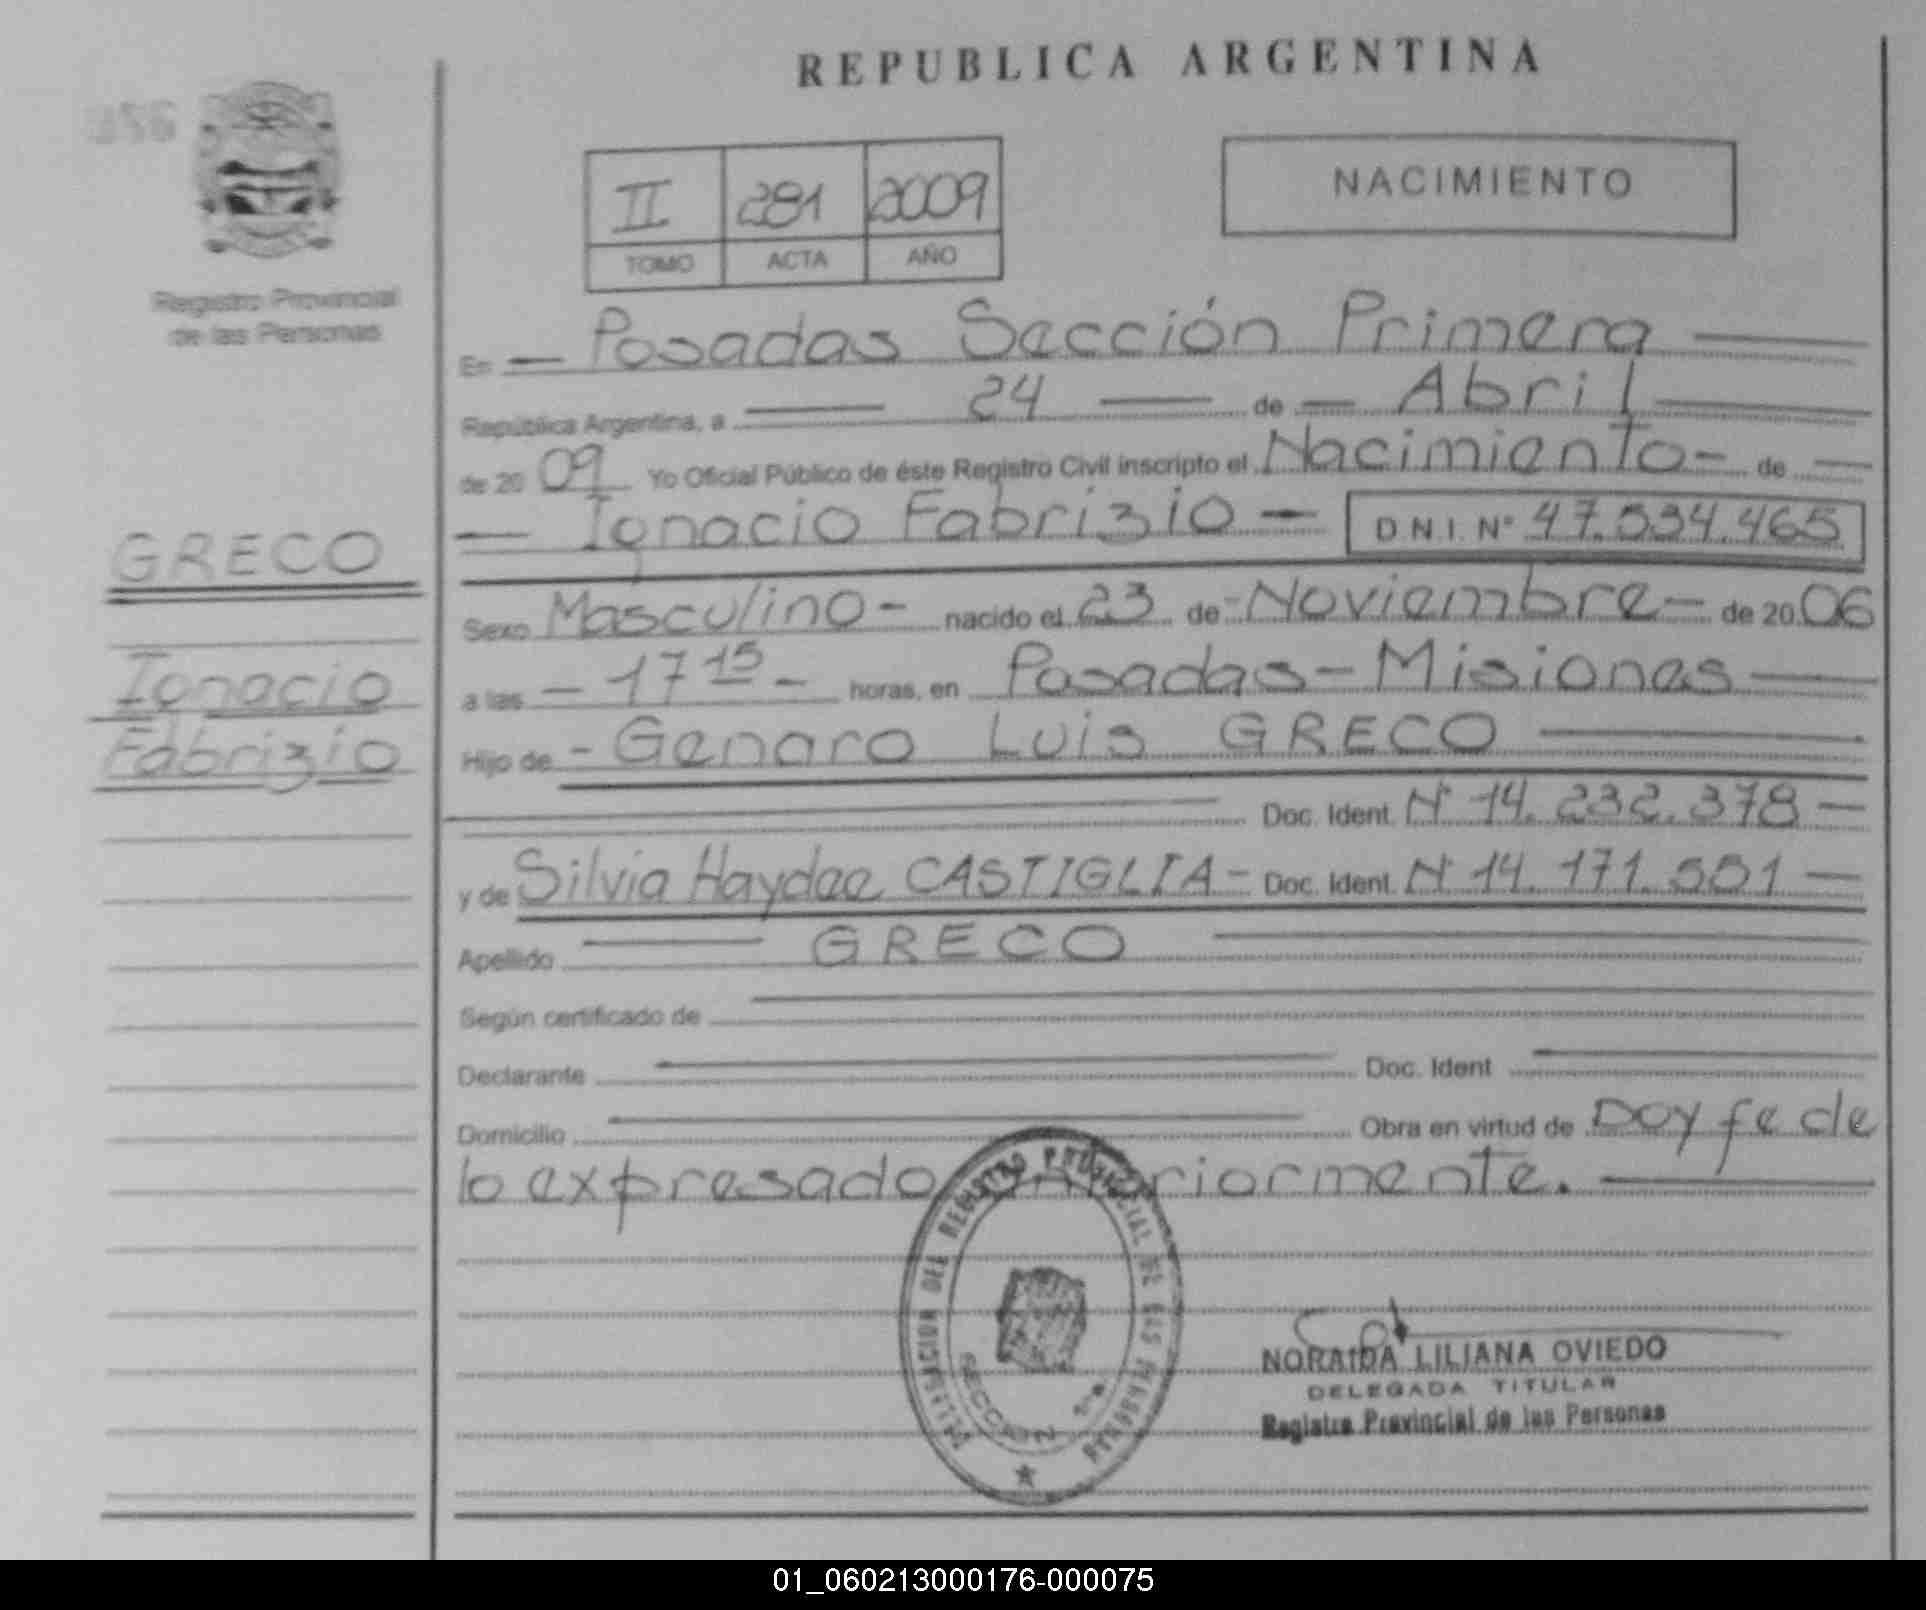 REPUBLICA ARGENTINA
356
NACIMIENTO
II 281 2009
TOMO ACTA AÑO
Registro Provincial
de las Personas
En — Posadas Sección Primera —
República Argentina, a — 24 — de — Abril —
de 20 09 Yo Oficial Público de éste Registro Civil inscripto el Nacimiento - de —
— Ignacio Fabrizio — D.N.I. N° 47.534.465
GRECO
Sexo Masculino - nacido el 23 de - Noviembre - de 20 06
Ignacio
a las — 17 15 - horas, en Posadas - Misiones —
Fabrizio
Hijo de - Genaro Luis GRECO —
Doc. Ident. N° 14.232.378 —
y de Silvia Haydee CASTIGLIA - Doc. Ident. N° 14.171.551 —
Apellido — GRECO —
Según certificado de —
Declarante — Doc. Ident —
Domicilio — Obra en virtud de Doy fe de
lo expresado anteriormente. —
DEL REGISTRO PROVINCIAL DE LAS PERSONAS
SECCION 1ra.
NORAIDA LILIANA OVIEDO
DELEGADA TITULAR
Registro Provincial de las Personas
01_060213000176-000075